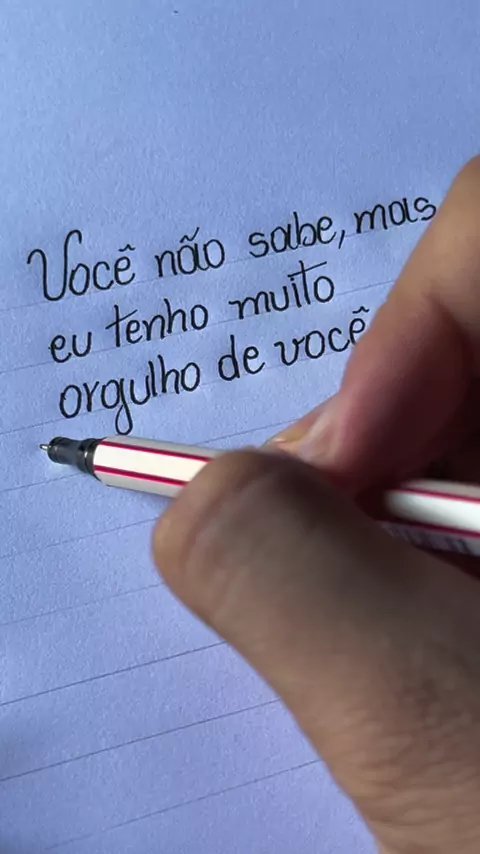 Você não sabe, mas
eu tenho muito
orgulho de você